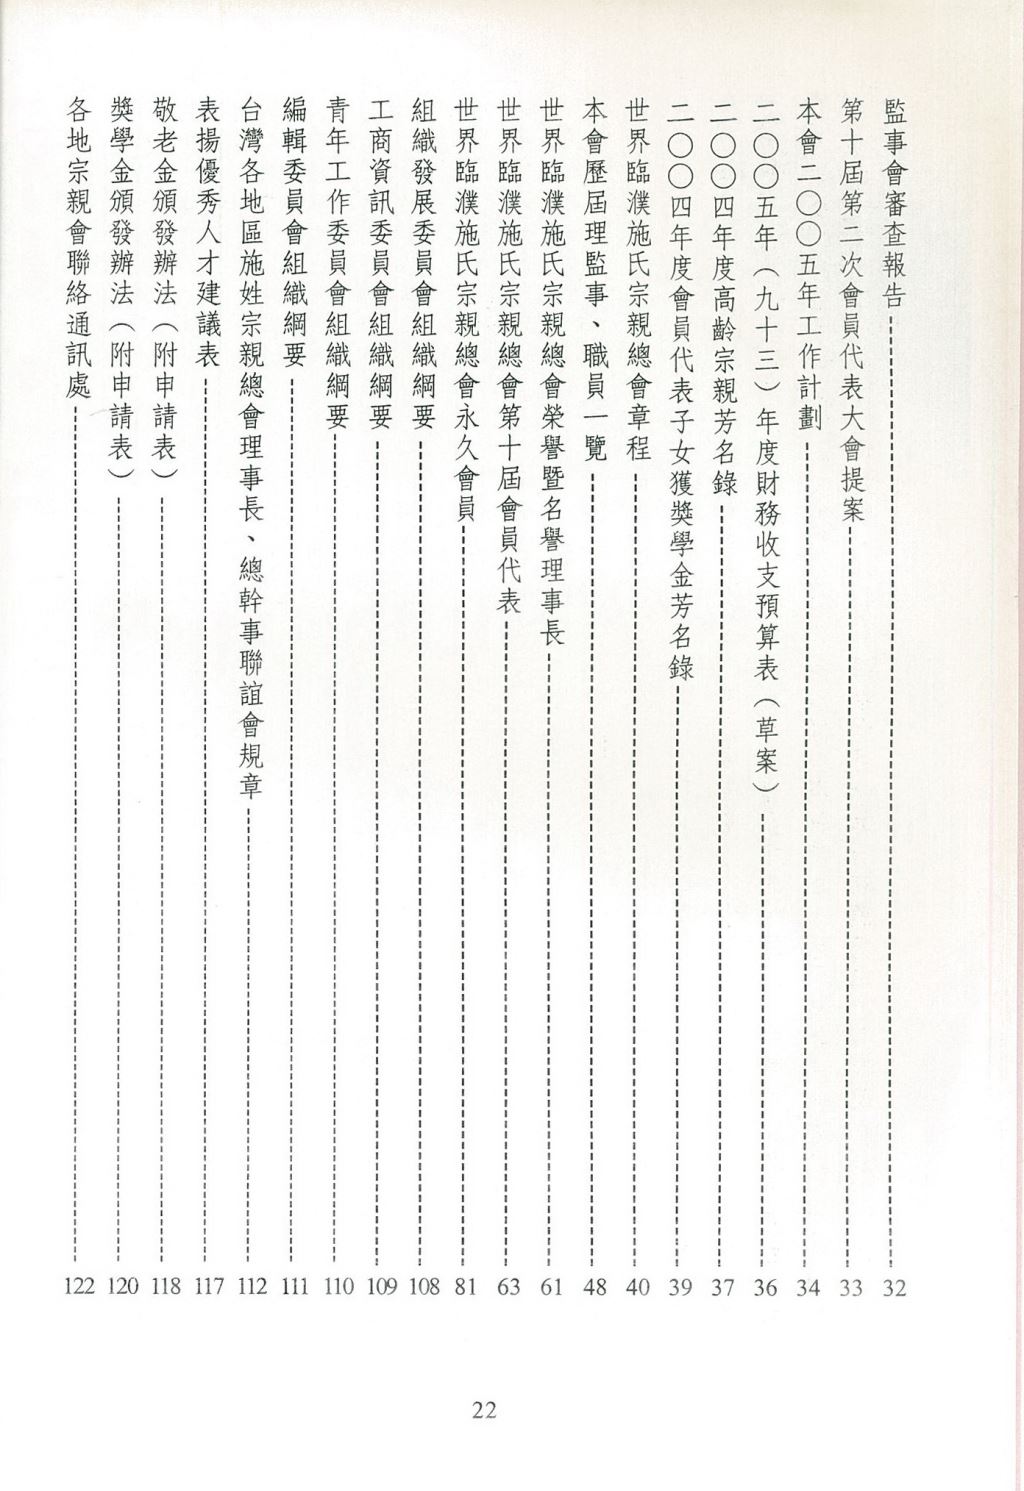 監事會審查報告 32
第十屆第二次會員代表大會提案 33
本會二〇〇五年工作計劃 34
二〇〇五年（九十三）年度財務收支預算表（草案） 36
二〇〇四年度高齡宗親芳名錄 37
二〇〇四年度會員代表子女獲獎學金芳名錄 39
世界臨濮施氏宗親總會章程 40
本會歷屆理監事、職員一覽 48
世界臨濮施氏宗親總會榮譽暨名譽理事長 61
世界臨濮施氏宗親總會第十屆會員代表 63
世界臨濮施氏宗親總會永久會員 81
組織發展委員會組織綱要 108
工商資訊委員會組織綱要 109
青年工作委員會組織綱要 110
編輯委員會組織綱要 111
台灣各地區施姓宗親總會理事長、總幹事聯誼會規章 112
表揚優秀人才建議表 117
敬老金頒發辦法（附申請表） 118
獎學金頒發辦法（附申請表） 120
各地宗親會聯絡通訊處 122
22